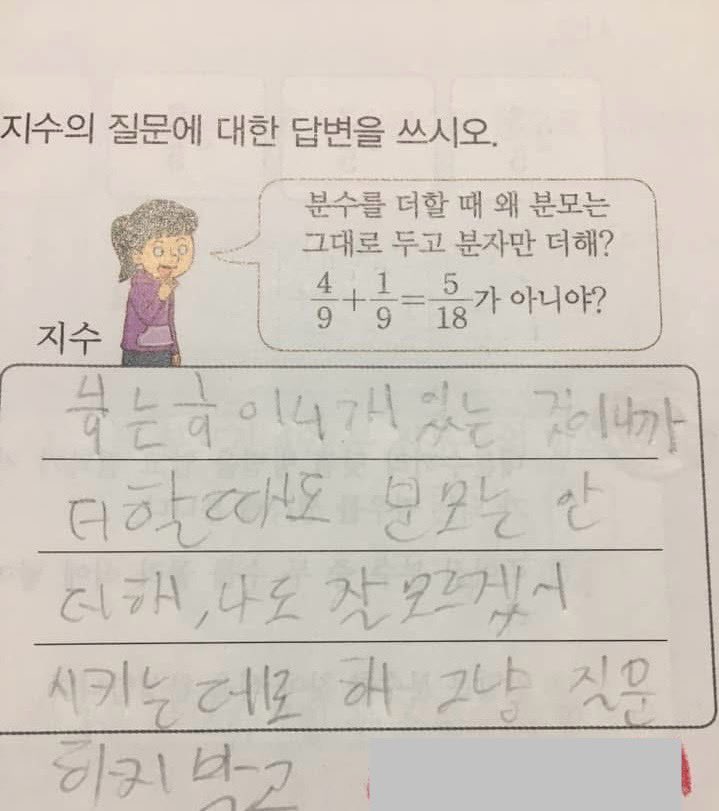 지수의 질문에 대한 답변을 쓰시오.
분수를 더할 때 왜 분모는
그대로 두고 분자만 더해?
4/9 + 1/9 = 5/18 가 아니야?
지수
4/9 는 1/9 이 4개 있는 것이니까
더할때도 분모는 안
더해, 나도 잘 모르겠서
시키는 데로 해 그냥 질문
하지 말고